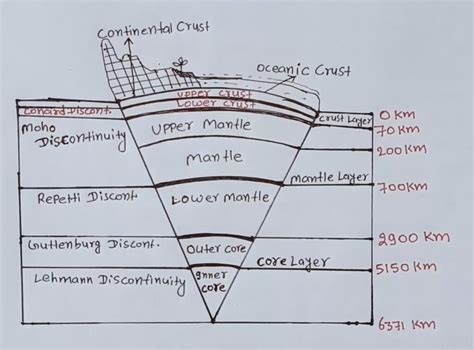 Continental Crust
Oceanic Crust
Upper crust
Lower crust
Conard Discont.
Crust Layer
0 KM
Moho
Discontinuity
Upper Mantle
70 KM
200 KM
Mantle
Mantle Layer
700 KM
Repetti Discont.
Lower Mantle
2900 KM
Guttenburg Discont.
Outer core
Core Layer
5150 KM
Lehmann Discontinuity
Inner
core
6371 KM